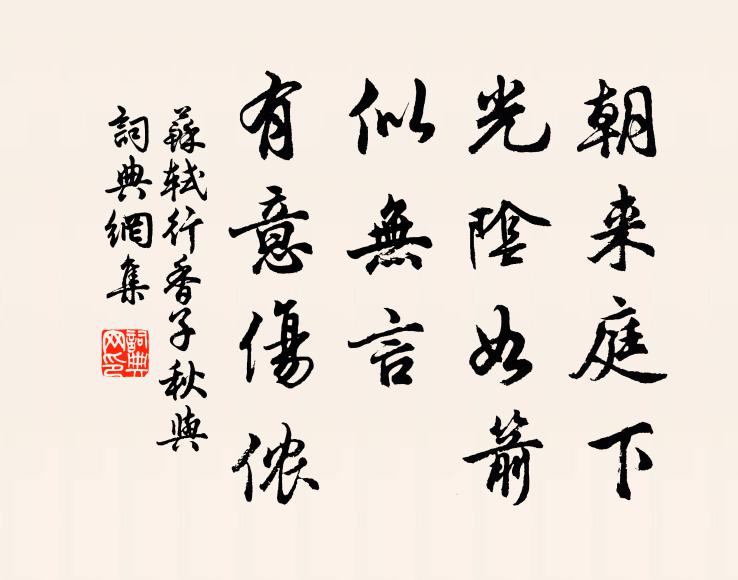 朝来庭下
光陰如箭
似無言
有意傷侬
蘇軾行香子秋與
詞典網集
詞典
网印